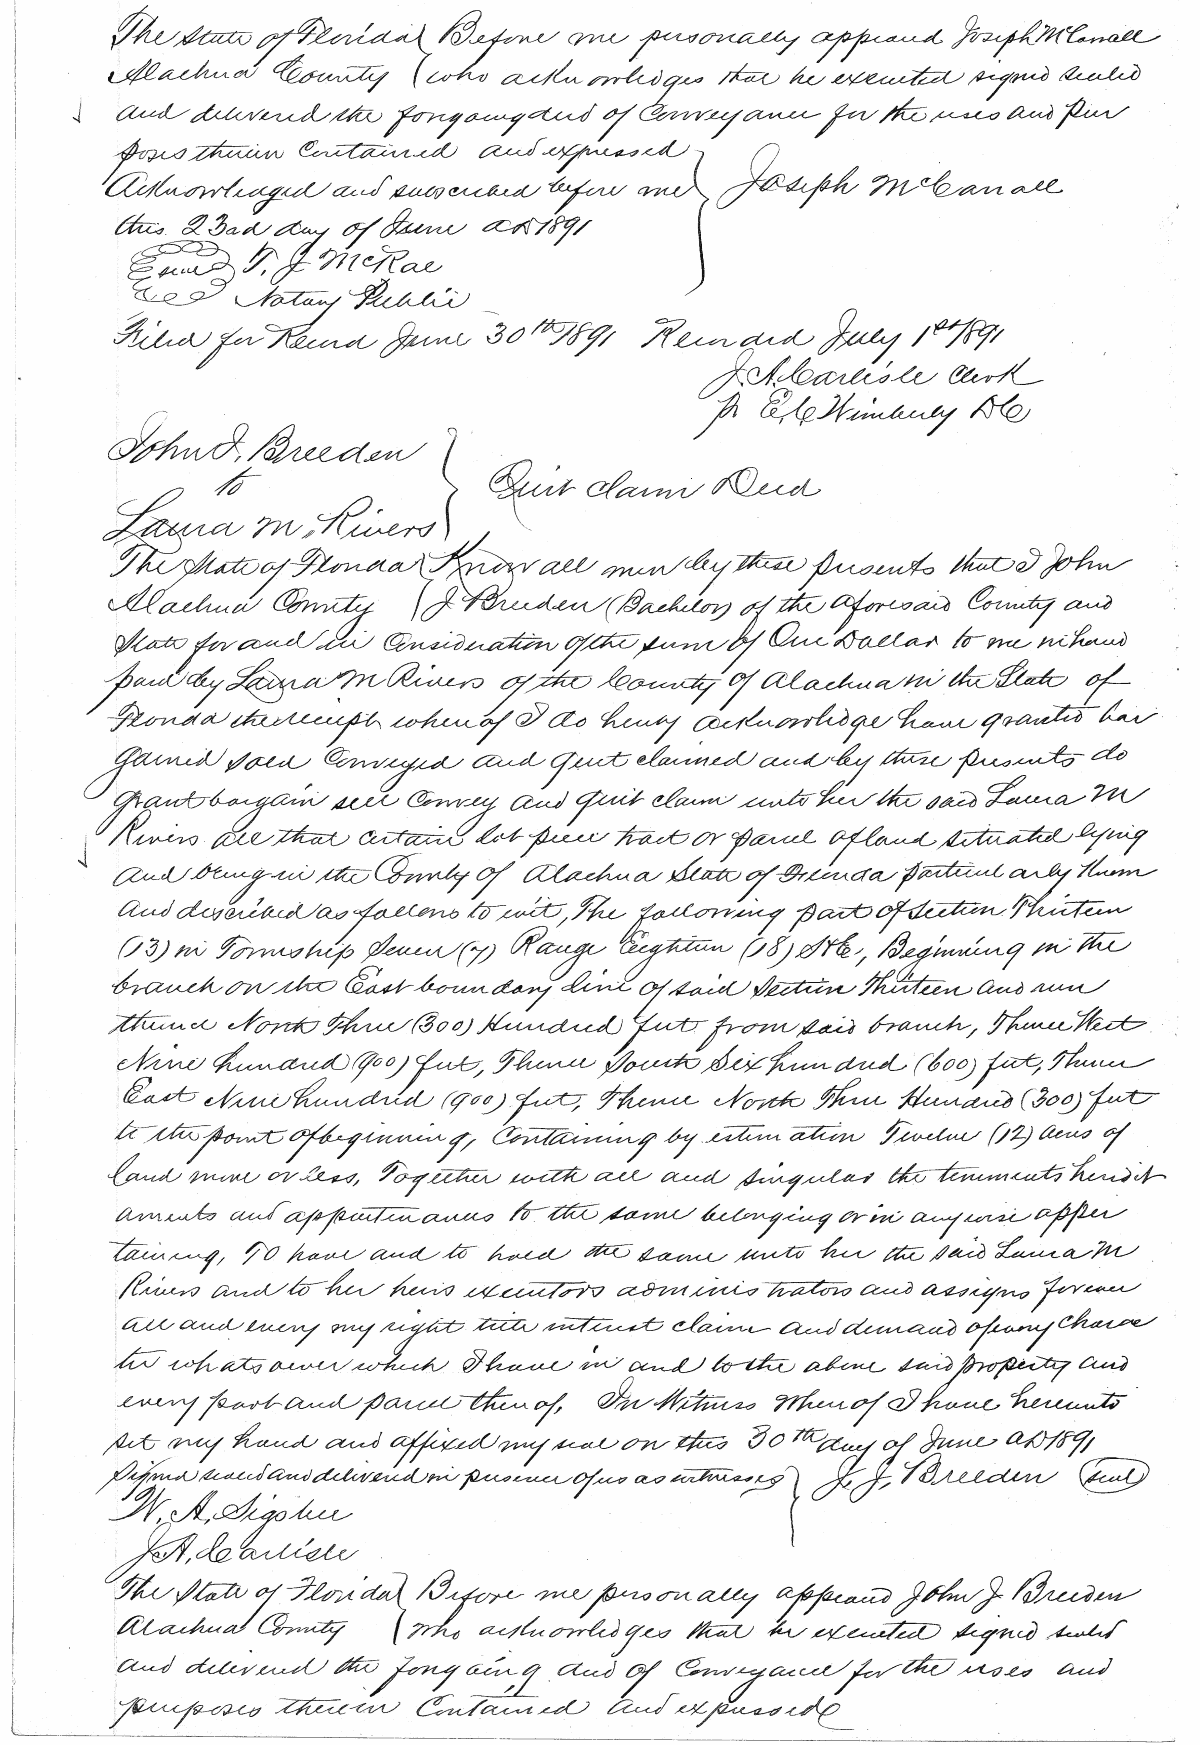 The State of Florida } Before me personally appeared Joseph McCarrall
Alachua County } who acknowledges that he executed signed sealed
and delivered the foregoing deed of Conveyance for the uses and pur
poses therein Contained and expressed
Acknowledged and subscribed before me } Joseph McCarrall
this 23rd day of June AD 1891
T. J McRae
Seal Notary Public
Filed for Record June 30th 1891 Recorded July 1st 1891
J. A. Carlisle Clerk
Pr E. C. Wimberly DC
John J. Breeden
to } Quit claim Deed
Laura M. Rivers
The State of Florida } Know all men by these presents that I John
Alachua County } J Breeden (Bachelor) of the aforesaid County and
State for and in Consideration of the sum of One Dollar to me in hand
paid by Laura M Rivers of the County of Alachua in the State of
Florida the receipt whereof I do hereby acknowledge have granted bar
gained sold Conveyed and Quit claimed and by these presents do
grant bargain sell Convey and Quit claim unto her the said Laura M
Rivers all that certain lot piece tract or parcel of land situated lying
and being in the County of Alachua State of Florida particularly Known
and described as follows to wit, The following part of Section Thirteen
(13) in Township Seven (7) Range Eighteen (18) S&E, Beginning in the
branch on the East boundary line of said Section Thirteen and run
thence North Three (300) Hundred feet from said branch, Thence West
Nine hundred (900) feet, Thence South Six hundred (600) feet, Thence
East Nine hundred (900) feet, Thence North Three Hundred (300) feet
to the point of beginning, Containing by estimation Twelve (12) acres of
land more or less, Together with all and singular the tenements heredit
aments and appurtenances to the same belonging or in anywise apper
taining, To have and to hold the same unto her the said Laura M
Rivers and to her heirs executors administrators and assigns forever
all and every my right title interest claim and demand of every Charac
ter whatsoever which I have in and to the above said property and
every part and parcel thereof, In Witness Whereof I have hereunto
set my hand and affixed my seal on this 30th day of June AD 1891
Signed sealed and delivered in presence of us as witnesses } J. J. Breeden (seal)
W. A. Sigsbee
J. A. Carlisle
The State of Florida } Before me personally appeared John J Breeden
Alachua County } who acknowledges that he executed signed sealed
and delivered the foregoing deed of Conveyance for the uses and
purposes therein Contained and expressed